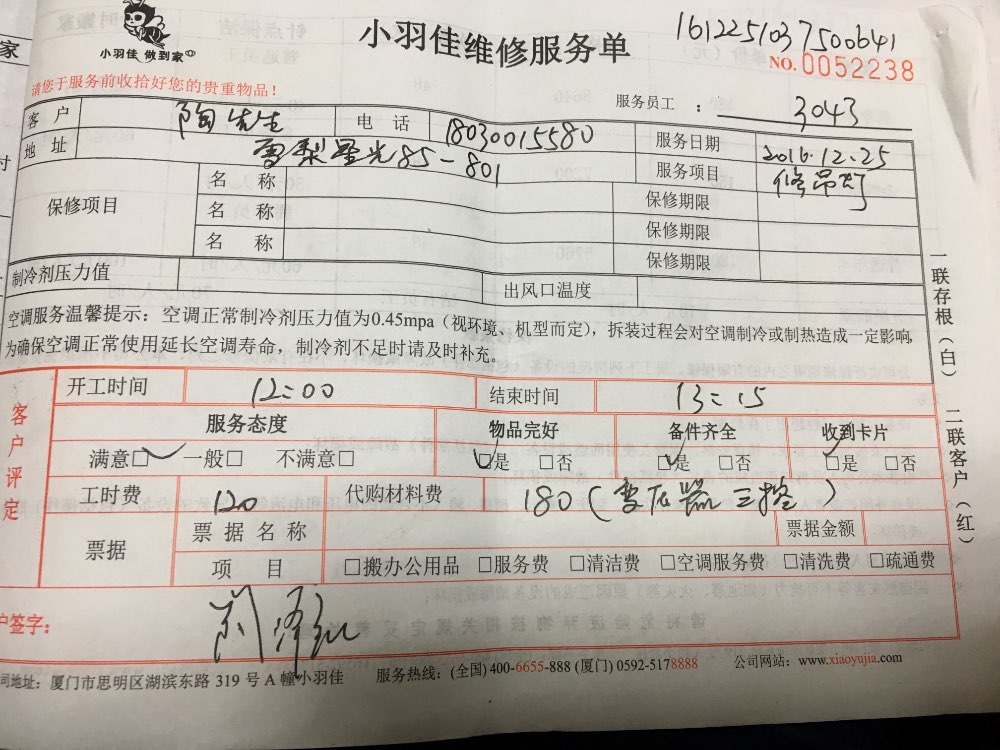 小羽佳 做到家
小羽佳维修服务单
1612251037500641
NO.0052238
请您于服务前收拾好您的贵重物品！
服务员工：3043
客户 陶先生 电话 18030015580 服务日期 2016.12.25
地址 雪梨星光85-801 服务项目 修吊灯
保修项目 名称 保修期限
名称 保修期限
名称 保修期限
制冷剂压力值 出风口温度
空调服务温馨提示：空调正常制冷剂压力值为0.45mpa（视环境、机型而定），拆装过程会对空调制冷或制热造成一定影响，
为确保空调正常使用延长空调寿命，制冷剂不足时请及时补充。
客户评定
开工时间 12:00 结束时间 13:15
服务态度 物品完好 备件齐全 收到卡片
满意□ 一般□ 不满意□ □是 □否 □是 □否 □是 □否
工时费 120 代购材料费 180（变压器 三控）
票据 票据名称 票据金额
项目 □搬办公用品 □服务费 □清洁费 □空调服务费 □清洗费 □疏通费
户签字：
司地址：厦门市思明区湖滨东路 319 号 A 幢小羽佳 服务热线：(全国) 400-6655-888 (厦门) 0592-5178888 公司网站：www.xiaoyujia.com
一联存根（白） 二联客户（红）